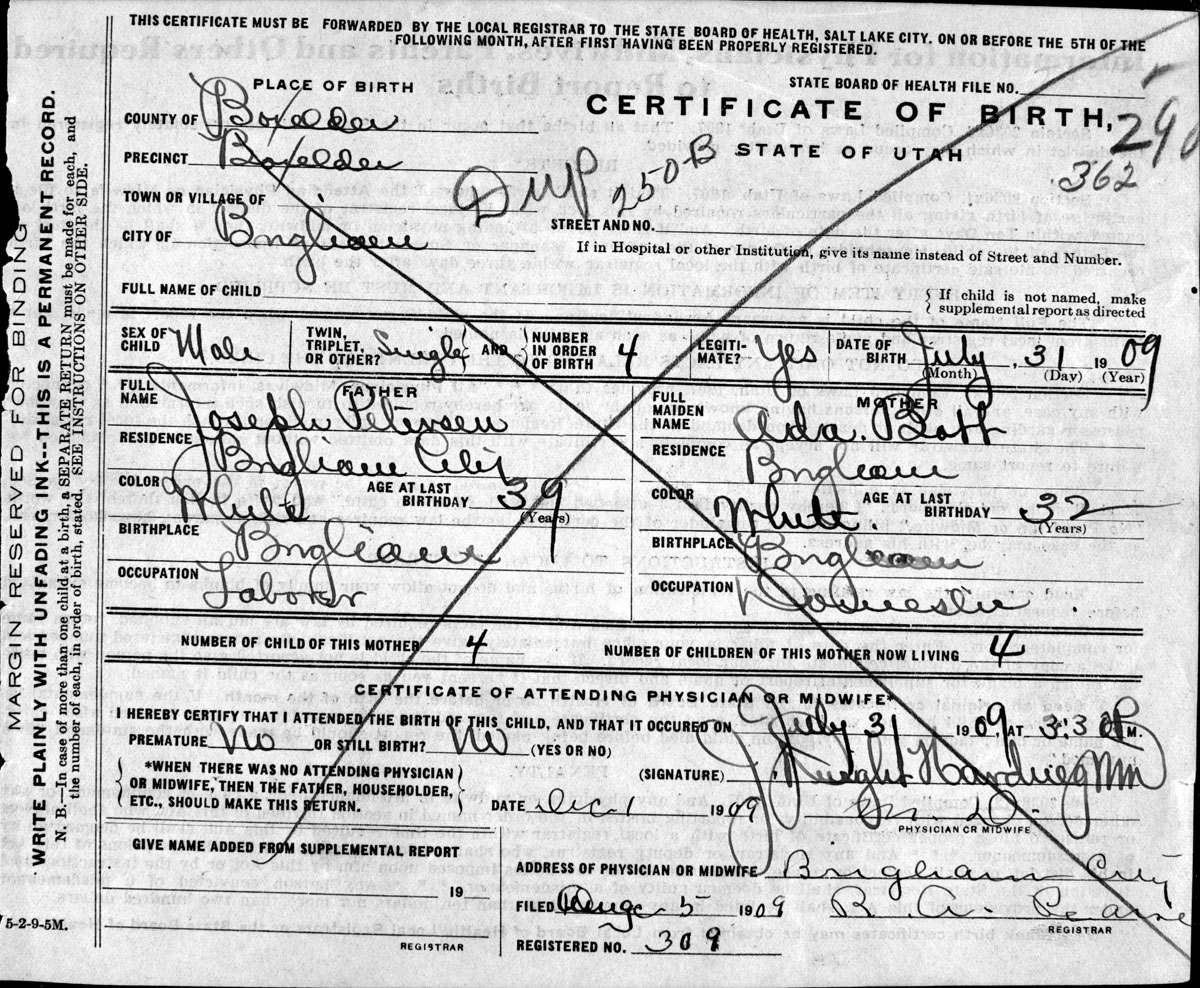 THIS CERTIFICATE MUST BE FORWARDED BY THE LOCAL REGISTRAR TO THE STATE BOARD OF HEALTH, SALT LAKE CITY, ON OR BEFORE THE 5TH OF THE
FOLLOWING MONTH, AFTER FIRST HAVING BEEN PROPERLY REGISTERED.
PLACE OF BIRTH
STATE BOARD OF HEALTH FILE NO.
CERTIFICATE OF BIRTH,
290
COUNTY OF Boxelder
PRECINCT Boxelder
STATE OF UTAH
362
Dup 250-B
TOWN OR VILLAGE OF
STREET AND NO.
CITY OF Brigham
If in Hospital or other Institution, give its name instead of Street and Number.
FULL NAME OF CHILD
{ If child is not named, make supplemental report as directed
SEX OF CHILD Male TWIN, TRIPLET, OR OTHER? Single AND NUMBER IN ORDER OF BIRTH 4 LEGITI-MATE? Yes DATE OF BIRTH July 31 1909
(Month) (Day) (Year)
FATHER
FULL NAME Joseph Petersen
RESIDENCE Brigham City
COLOR White AGE AT LAST BIRTHDAY 39
(Years)
BIRTHPLACE Brigham
OCCUPATION Laborer
MOTHER
FULL MAIDEN NAME Ada. Bott
RESIDENCE Brigham
COLOR White. AGE AT LAST BIRTHDAY 32
(Years)
BIRTHPLACE Brigham
OCCUPATION Domestic
NUMBER OF CHILD OF THIS MOTHER 4 NUMBER OF CHILDREN OF THIS MOTHER NOW LIVING 4
CERTIFICATE OF ATTENDING PHYSICIAN OR MIDWIFE*
I HEREBY CERTIFY THAT I ATTENDED THE BIRTH OF THIS CHILD, AND THAT IT OCCURED ON July 31 1909, AT 3:3 P M.
PREMATURE No OR STILL BIRTH? No (YES OR NO)
*WHEN THERE WAS NO ATTENDING PHYSICIAN
OR MIDWIFE, THEN THE FATHER, HOUSEHOLDER,
ETC., SHOULD MAKE THIS RETURN.
(SIGNATURE)
DATE 1909
PHYSICIAN OR MIDWIFE
GIVE NAME ADDED FROM SUPPLEMENTAL REPORT
19
REGISTRAR
ADDRESS OF PHYSICIAN OR MIDWIFE Brigham City
FILED Aug 5 1909 R. A. Pearse
REGISTRAR
REGISTERED NO. 309
5-2-9-5M.
MARGIN RESERVED FOR BINDING
WRITE PLAINLY WITH UNFADING INK--THIS IS A PERMANENT RECORD.
N. B.—In case of more than one child at a birth, a SEPARATE RETURN must be made for each, and
the number of each, in order of birth, stated. SEE INSTRUCTIONS ON OTHER SIDE.